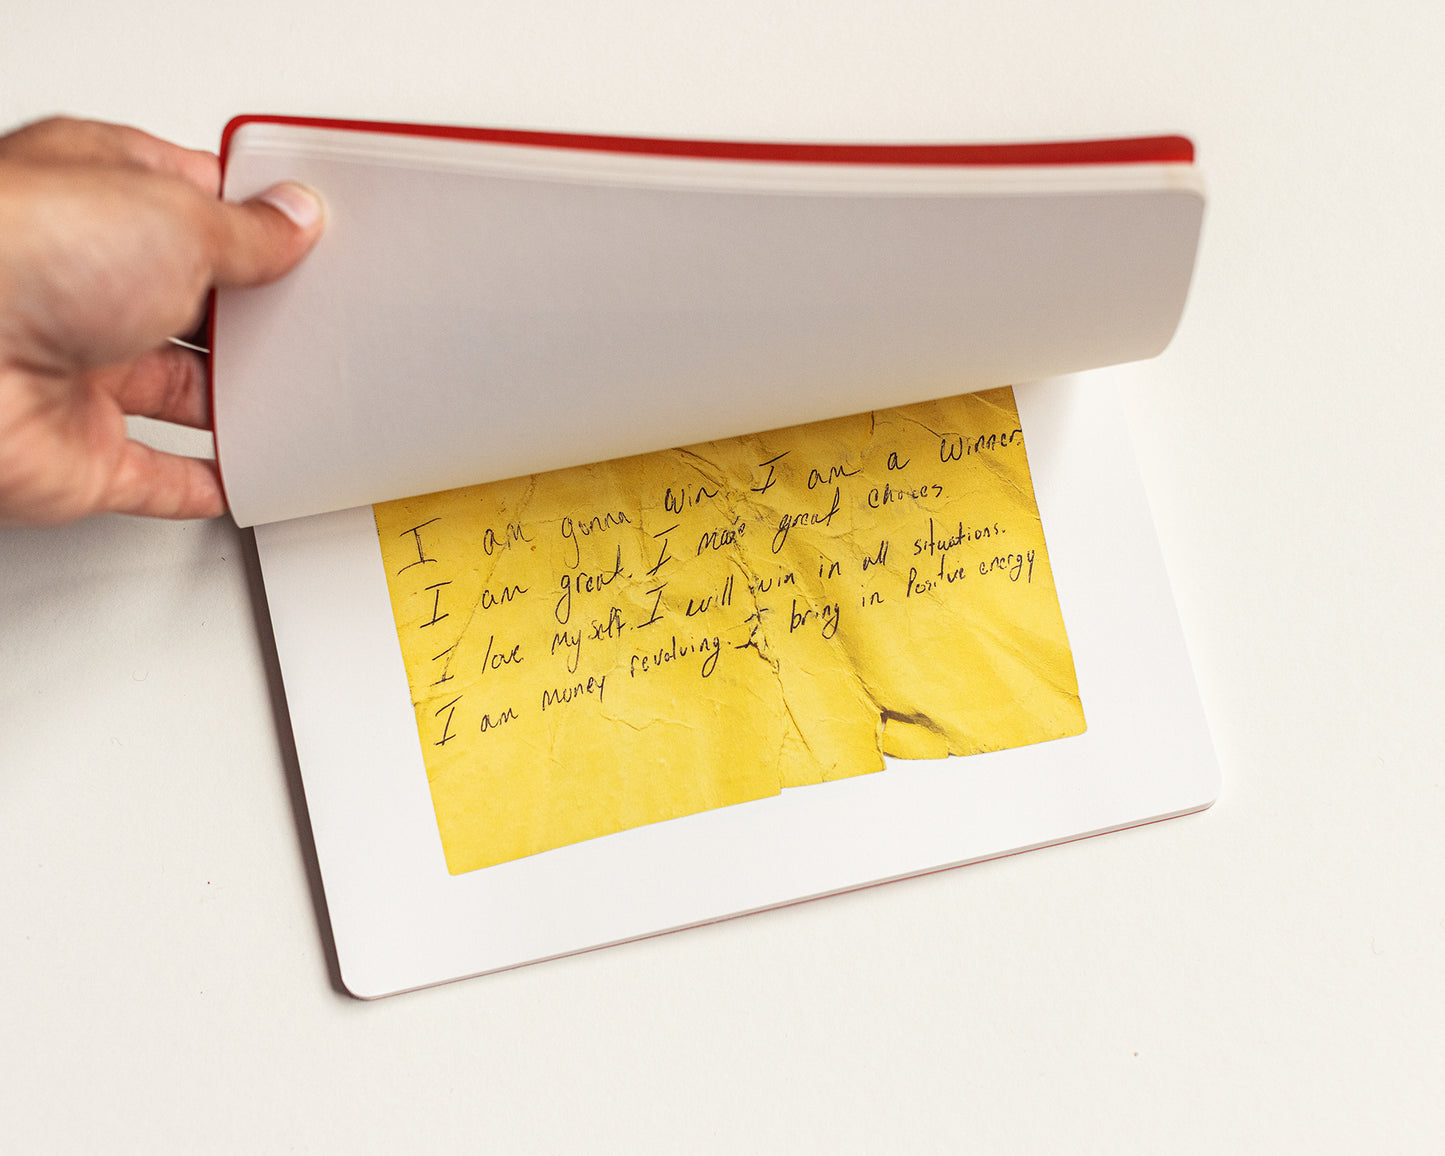 I am gonna win I am a winner.
I am great. I make great choices
I love myself. I will win in all situations.
I am money revolving. I bring in Positive energy